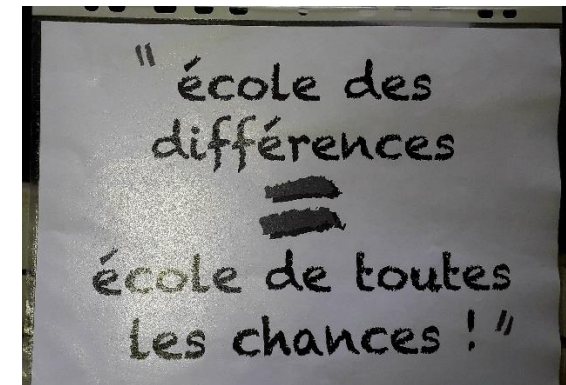 " école des
différences
=
école de toutes
les chances ! "